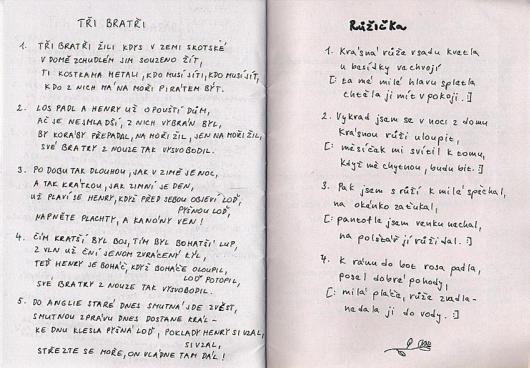 TŘI BRATŘI
1. TŘI BRATŘI ŽILI KDYS V ZEMI SKOTSKÉ
V DOMĚ ZCHUDLÉM JIM SOUZENO ŽÍT,
TI KOSTKAMA METALI, KDO MUSÍ JÍTI, KDO MUSÍ JÍT,
KDO Z NICH MÁ NA MOŘI PIRÁTEM BÝT.
2. LOS PADL A HENRY UŽ OPOUŠTÍ DŮM,
AČ JE NEJMLADŠÍ, Z NICH VYBRÁN BYL,
BY KORÁBY PŘEPADAL, NA MOŘI ŽIL, JEN NA MOŘI ŽIL,
SVÉ BRATRY Z NOUZE TAK VYSVOBODIL.
3. PO DOBU TAK DLOUHOU, JAK V ZIMĚ JE NOC,
A TAK KRÁTKOU, JAK ZIMNÍ JE DEN,
UŽ PLAVÍ SE HENRY, KDYŽ PŘED SEBOU OBJEVÍ LOĎ,
PYŠNOU LOĎ,
NAPNĚTE PLACHTY, A KANÓNY VEN!
4. ČÍM KRATŠÍ BYL BOJ, TÍM BYL BOHATŠÍ LUP,
Z VLN UŽ ČNÍ JENOM ZVRÁCENÝ KÝL,
TEĎ HENRY JE BOHÁČ, KDYŽ BOHÁČE OLOUPIL,
LOĎ POTOPIL,
SVÉ BRATRY Z NOUZE TAK VYSVOBODIL.
5. DO ANGLIE STARÉ DNES SMUTNÁ JDE ZVĚST,
SMUTNOU ZPRÁVU DNES DOSTANE KRÁL-
KE DNU KLESLA PYŠNÁ LOĎ, POKLADY HENRY SI VZAL,
SI VZAL,
STŘEZTE SE MOŘE, ON VLÁDNE TAM DÁL!
RŮŽIČKA
1. Krásná růže v sadu kvetla
u besídky ve chvojí
[: ta mé milé hlavu spletla
chtěla ji mít v pokoji. :]
2. Vykrad jsem se v noci z domu
krásnou růži uloupit,
[: měsíček mi svítil k tomu,
když mě chytnou, budu bit. :]
3. Pak jsem s růží k milé spěchal,
na okénko zaťukal,
[: pantofle jsem venku nechal,
na polštář jí růži dal. :]
4. K ránu do bot rosa padla,
posel dobré pohody,
[: milá pláče, růže zvadla-
nedala ji do vody. :]